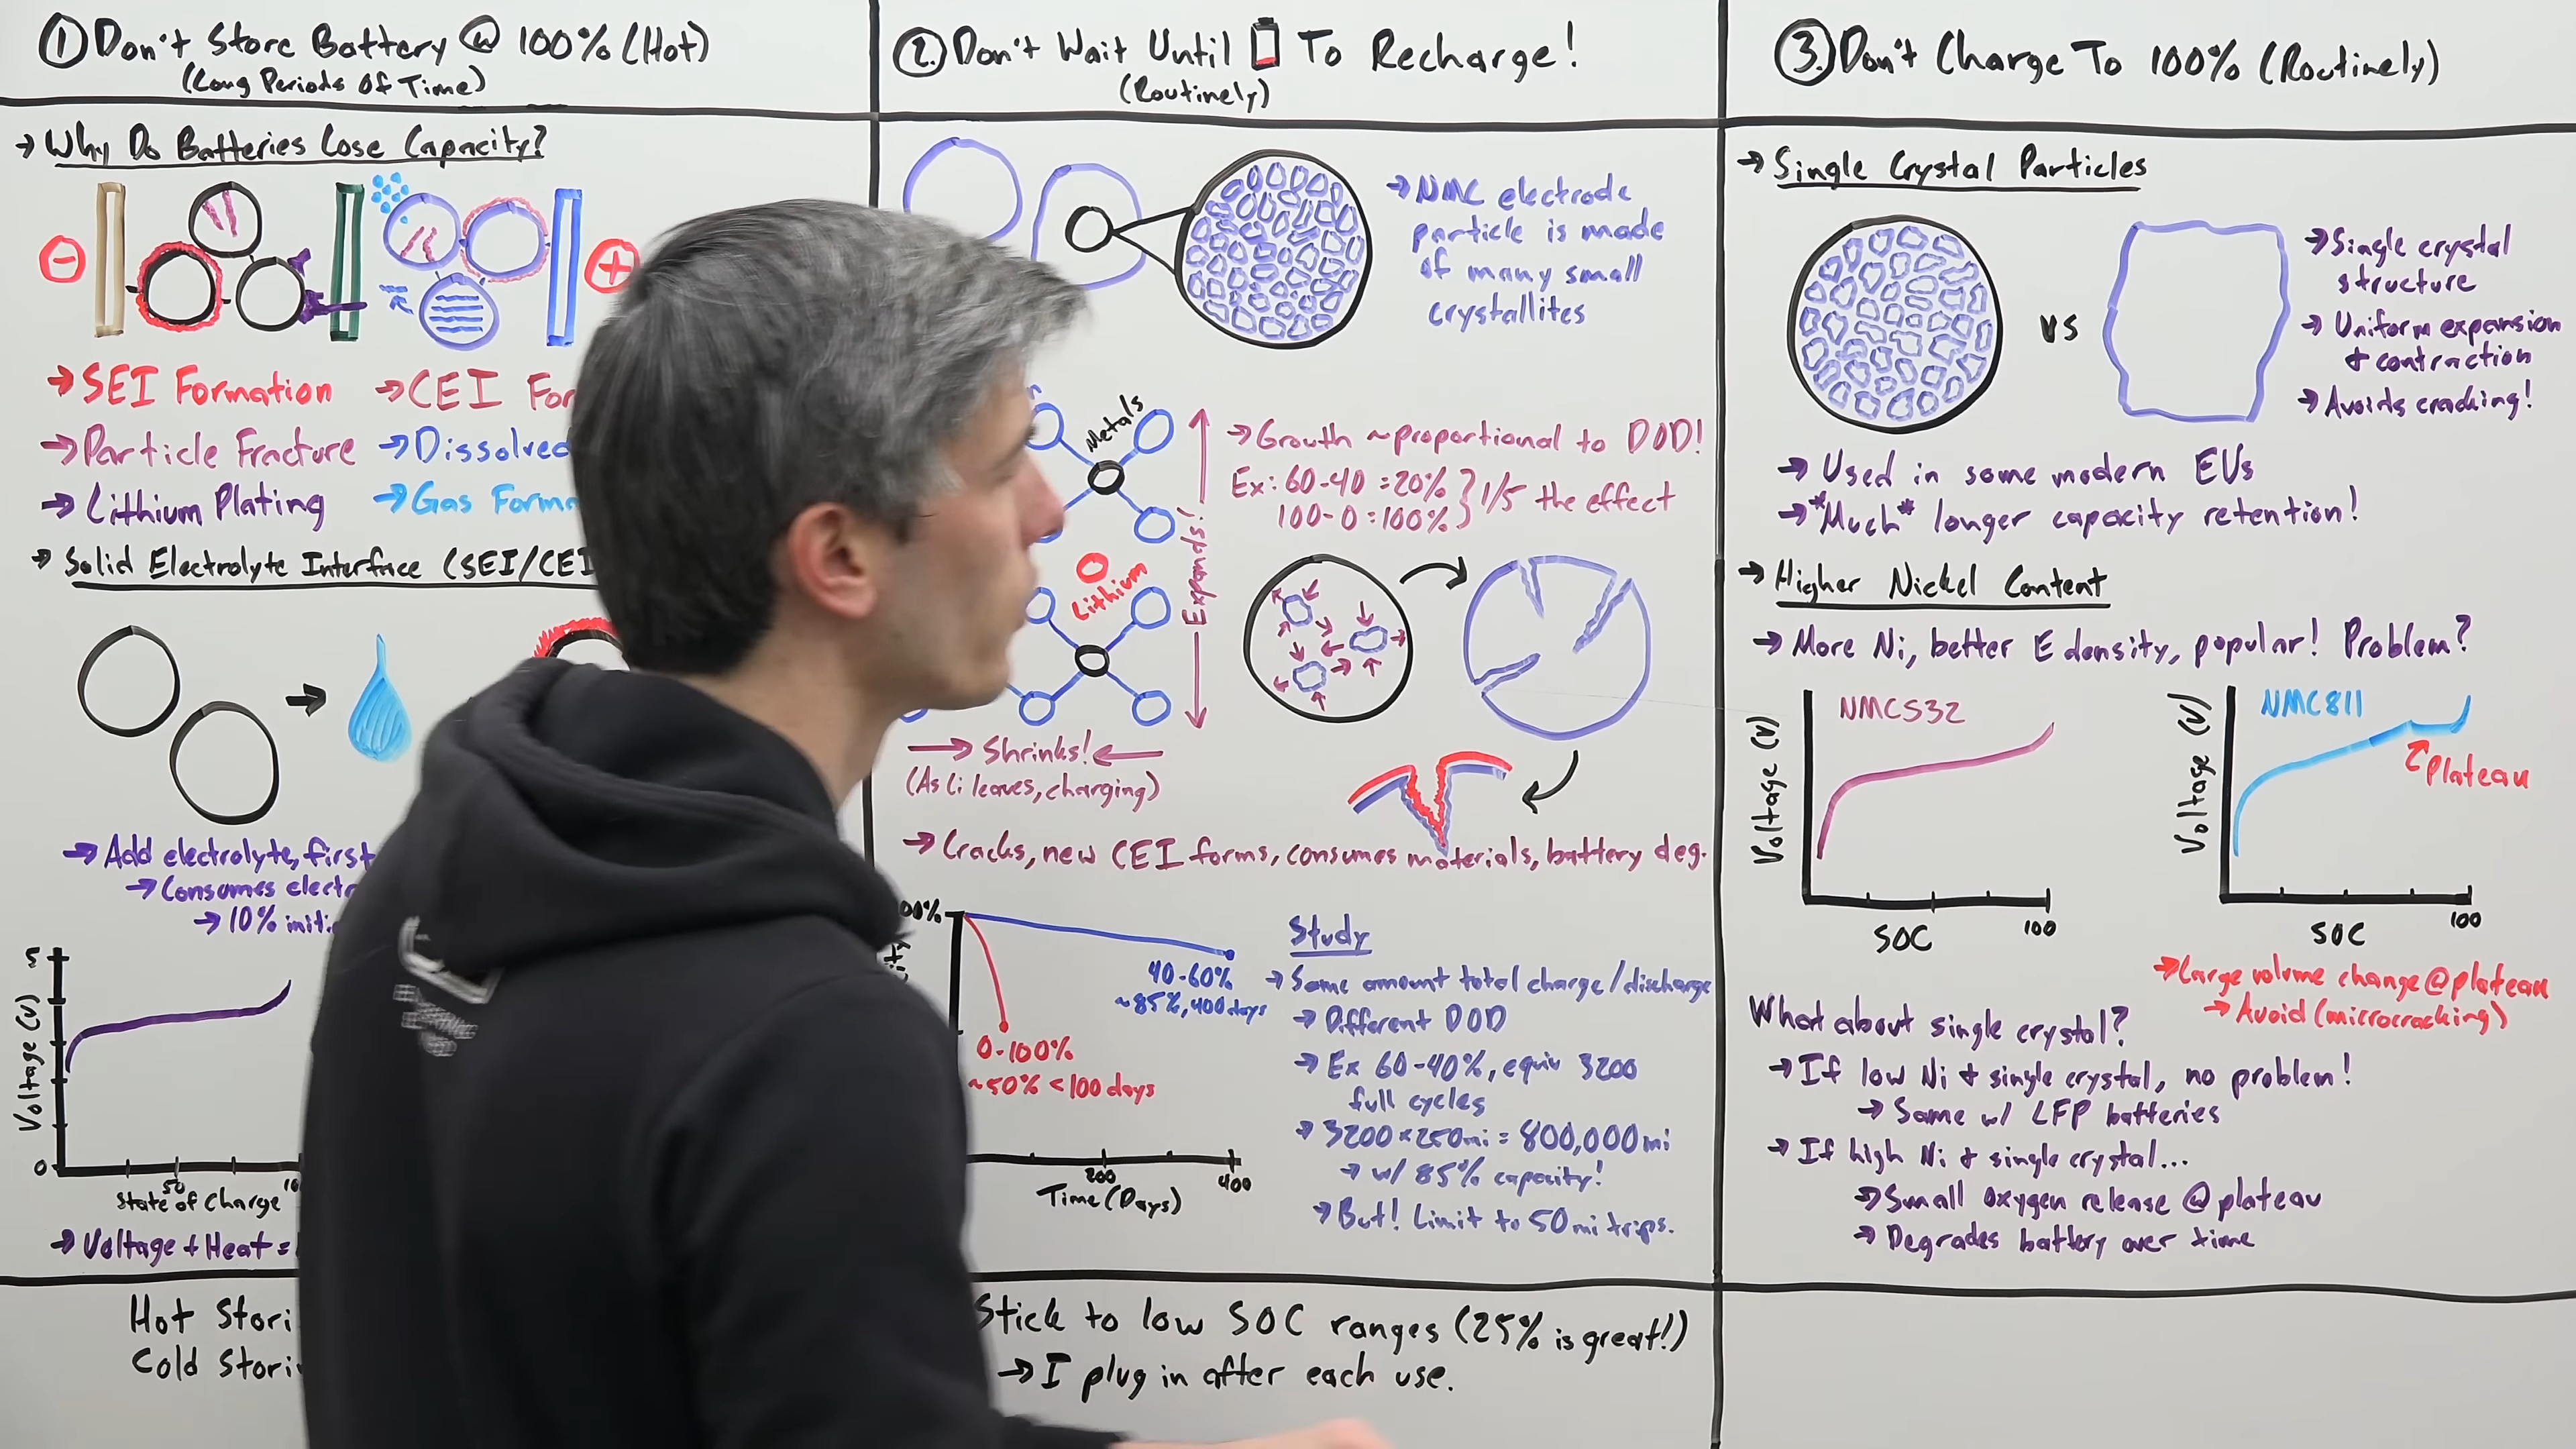 ① Don't Store Battery @ 100% (Hot)
(Long Periods Of Time)
→ Why Do Batteries Lose Capacity?
−
+
→ SEI Formation
→ CEI For
→ Particle Fracture
→ Dissolved
→ Lithium Plating
→ Gas Forma
→ Solid Electrolyte Interface (SEI/CEI
→ Add electrolyte, first
→ Consumes electr
→ 10% initi
5
Voltage (V)
0
50
10
State of Charge
→ Voltage + Heat =
Hot Stori
Cold Stori
②. Don't Wait Until To Recharge!
(Routinely)
→ NMC electrode
particle is made
of many small
crystallites
Metals
Lithium
Expands!
→ Growth ~proportional to DOD!
Ex: 60-40 = 20% } 1/5 the effect
100-0 = 100%
→ Shrinks! ←
(As Li leaves, charging)
→ Cracks, new CEI forms, consumes materials, battery deg.
00%
40-60%
~85%, 400 days
0-100%
~50% < 100 days
200
400
Time (Days)
Study
→ Same amount total charge/discharge
→ Different DOD
→ Ex 60-40%, equiv 3200
full cycles
→ 3200 × 250mi = 800,000mi
→ w/ 85% capacity!
→ But! Limit to 50mi trips.
Stick to low SOC ranges (25% is great!)
→ I plug in after each use.
③. Don't Charge To 100% (Routinely)
→ Single Crystal Particles
vs
→ Single crystal
structure
→ Uniform expansion
+ contraction
→ Avoids cracking!
→ Used in some modern EVs
→ *Much* longer capacity retention!
→ Higher Nickel Content
→ More Ni, better E density, popular! Problem?
NMC532
Voltage (V)
SOC
100
NMC811
Plateau
Voltage (V)
SOC
100
→ Large volume change @ plateau
→ Avoid (microcracking)
What about single crystal?
→ If low Ni + single crystal, no problem!
→ Same w/ LFP batteries
→ If high Ni + single crystal...
→ Small oxygen release @ plateau
→ Degrades battery over time